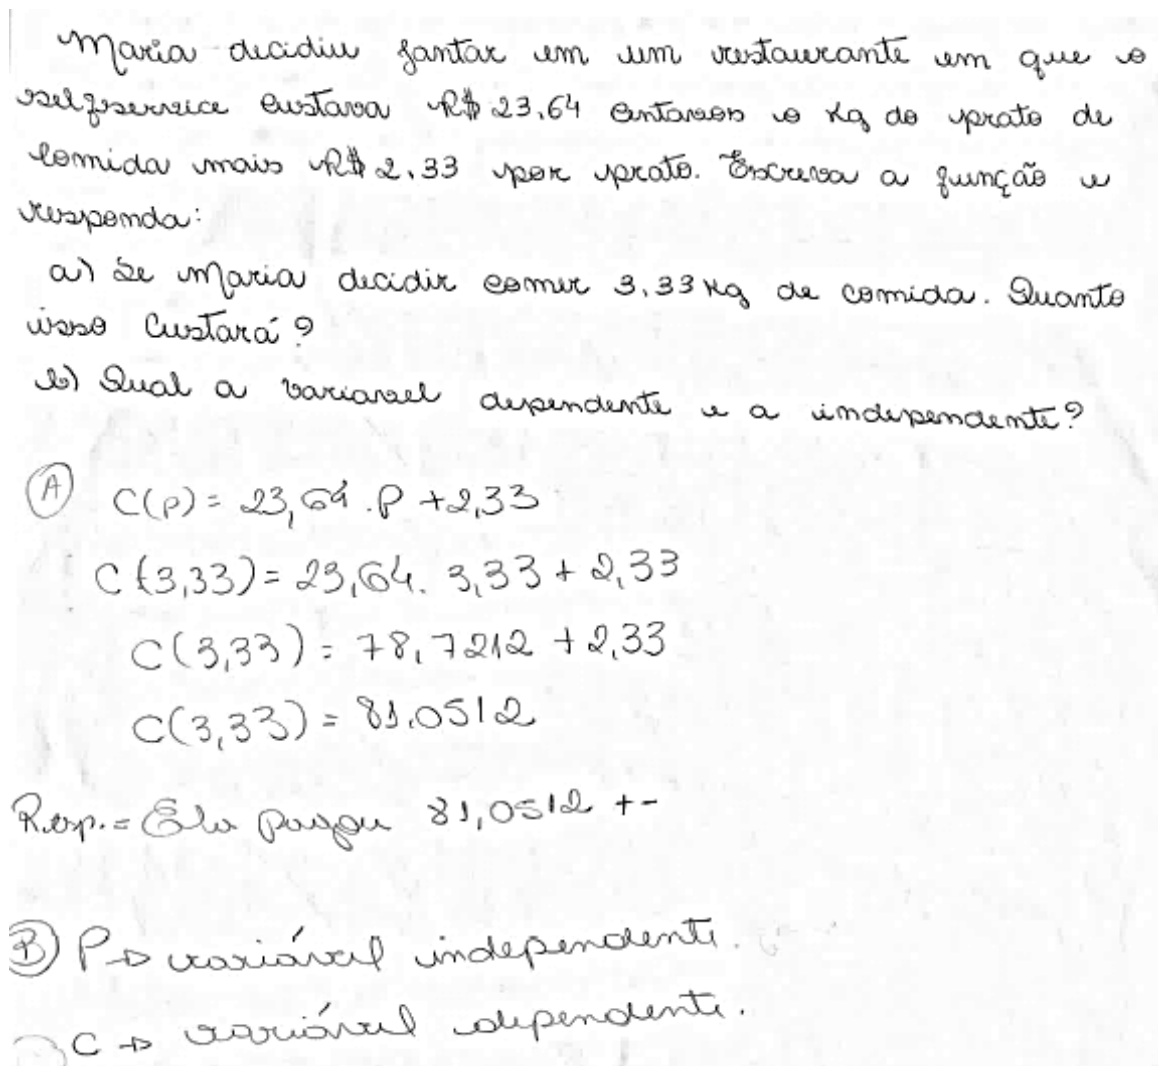 Maria decidiu jantar em um restaurante em que o
selfservice custava R$ 23,64 centavos o Kg do prato de
comida mais R$ 2,33 por prato. Escreva a função e
responda:
a) Se Maria decidir comer 3,33 Kg de comida. Quanto
isso custará?
b) Qual a variavel dependente e a independente?
A C(p) = 23,64 . p + 2,33
C(3,33) = 23,64 . 3,33 + 2,33
C(3,33) = 78,7212 + 2,33
C(3,33) = 81.0512
Resp. = Ela pagou 81,0512 + -
B P → variável independente.
C → variável dependente.